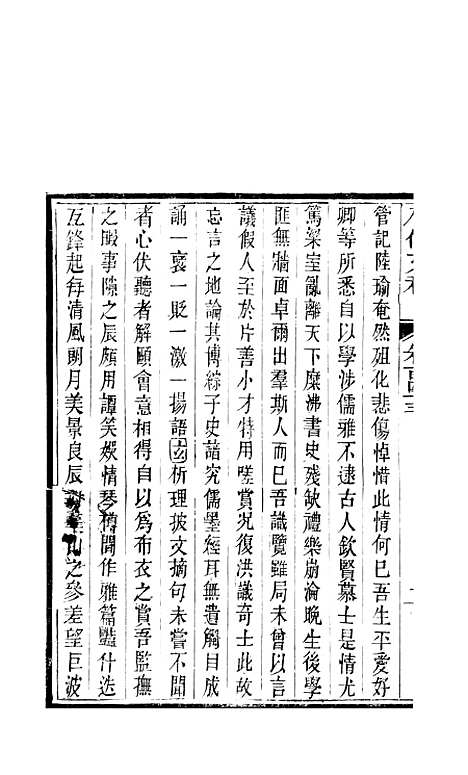 管記陸瑜奄然殂化悲傷悼惜此情何已吾生平愛好
卿等所悉自以學涉儒雅不逮古人欽賢慕士是情尤
篤梁室亂離天下糜沸書史殘缺禮樂崩淪晚生後學
匪無牆面卓爾出羣斯人而已吾識覽雖局未曾以言
議假人至於片善小才特用嗟賞况復洪識奇士此故
忘言之地論其博綜子史諳究儒墨經耳無遺觸目成
誦一襃一貶一激一揚語玄析理披文摘句未嘗不聞
者心伏聽者解頤會意相得自以為布衣之賞吾監撫
之暇事隙之辰頗用譚笑娛情琴樽間作雅篇豔什迭
互鋒起每清風朗月美景良辰對羣山之參差望巨波